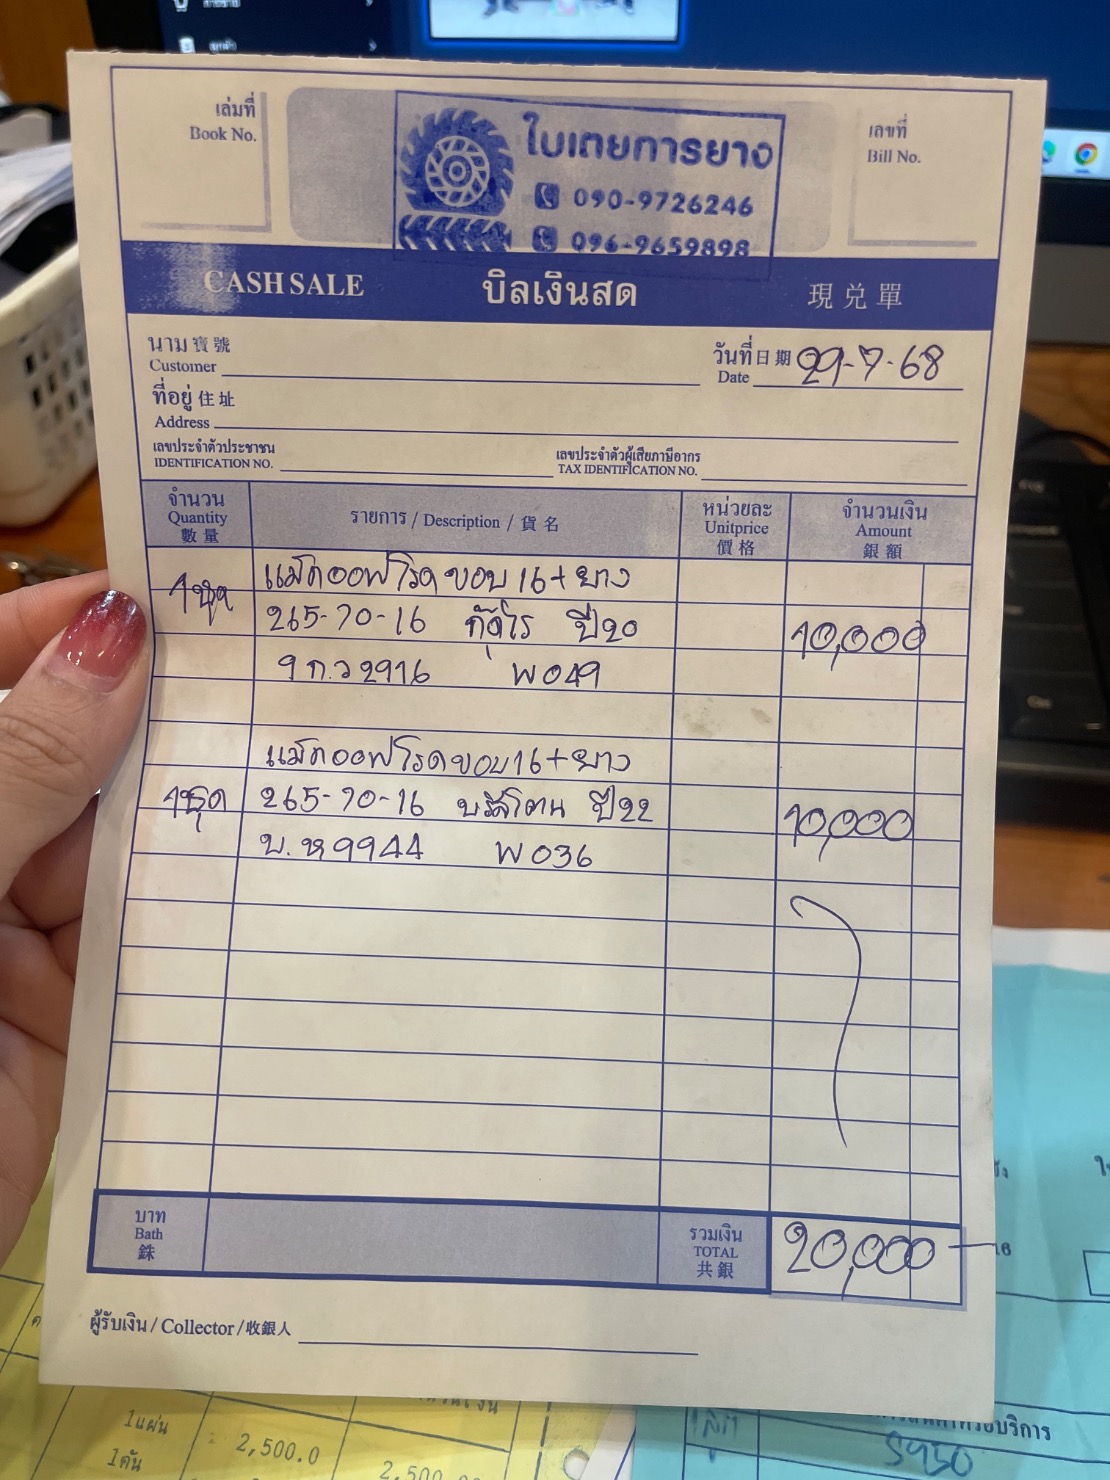 เล่มที่
Book No.
ใบเตยการยาง
090-9726246
096-9659898
เลขที่
Bill No.
CASH SALE บิลเงินสด 現兌單
นาม 寶號
Customer
วันที่ 日期 29-7-68
Date
ที่อยู่ 住址
Address
เลขประจำตัวประชาชน
IDENTIFICATION NO.
เลขประจำตัวผู้เสียภาษีอากร
TAX IDENTIFICATION NO.
จำนวน
Quantity
數量
รายการ / Description / 貨名
หน่วยละ
Unitprice
價格
จำนวนเงิน
Amount
銀額
แม็กออฟโรดขอบ 16+ยาง
1ชุด 265-70-16 ปี20 10,000
9กว2916 พ049
แม็กออฟโรดขอบ16+ยาง
1ชุด 265-70-16 ปี22 10,000
บ.ห9944 พ036
บาท
Bath
銖
รวมเงิน
TOTAL
共銀
20,000
ผู้รับเงิน / Collector / 收銀人
1แผ่น 2,500.0
1คัน 2,500
5950